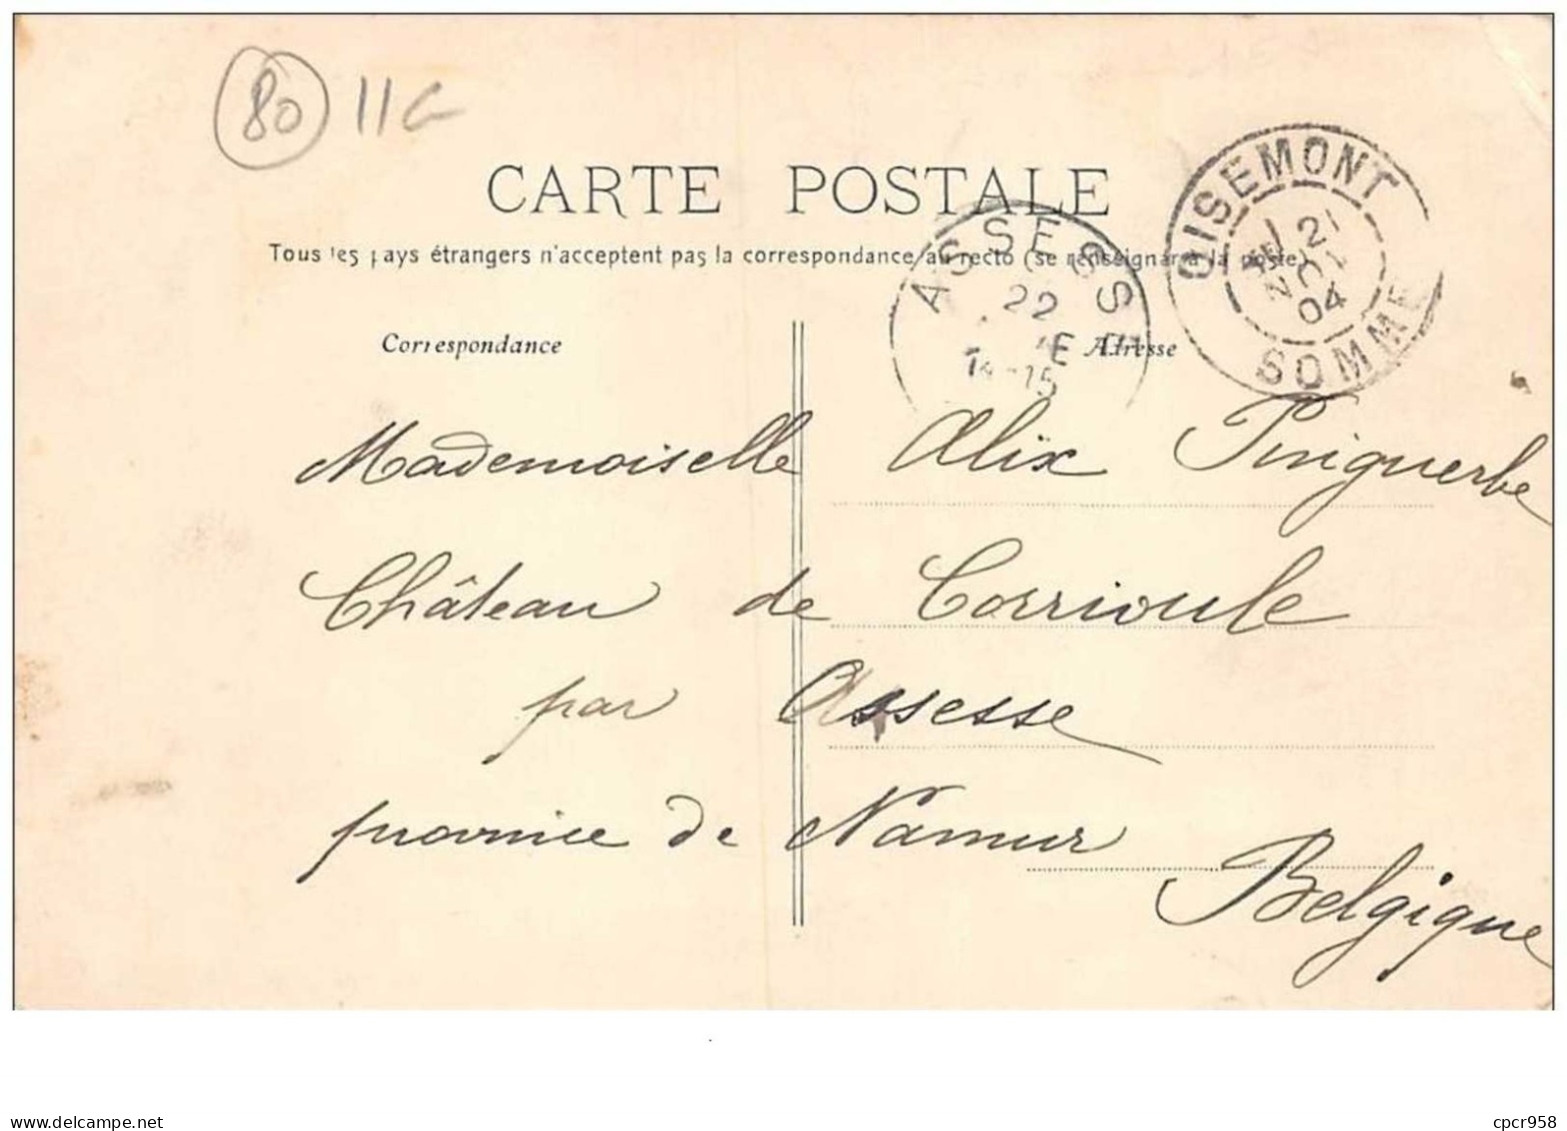 80 11G
CARTE POSTALE
Tous les pays étrangers n'acceptent pas la correspondance au recto (se renseigner à la poste)
OISEMONT
21
NOV
04
SOMME
ASSESSE
22
14-15
Correspondance
Adresse
Mademoiselle Alix Puiguerbe
Château de Corrioule
par Assesse
province de Namur
Belgique
www.delcampe.net
cpcr958